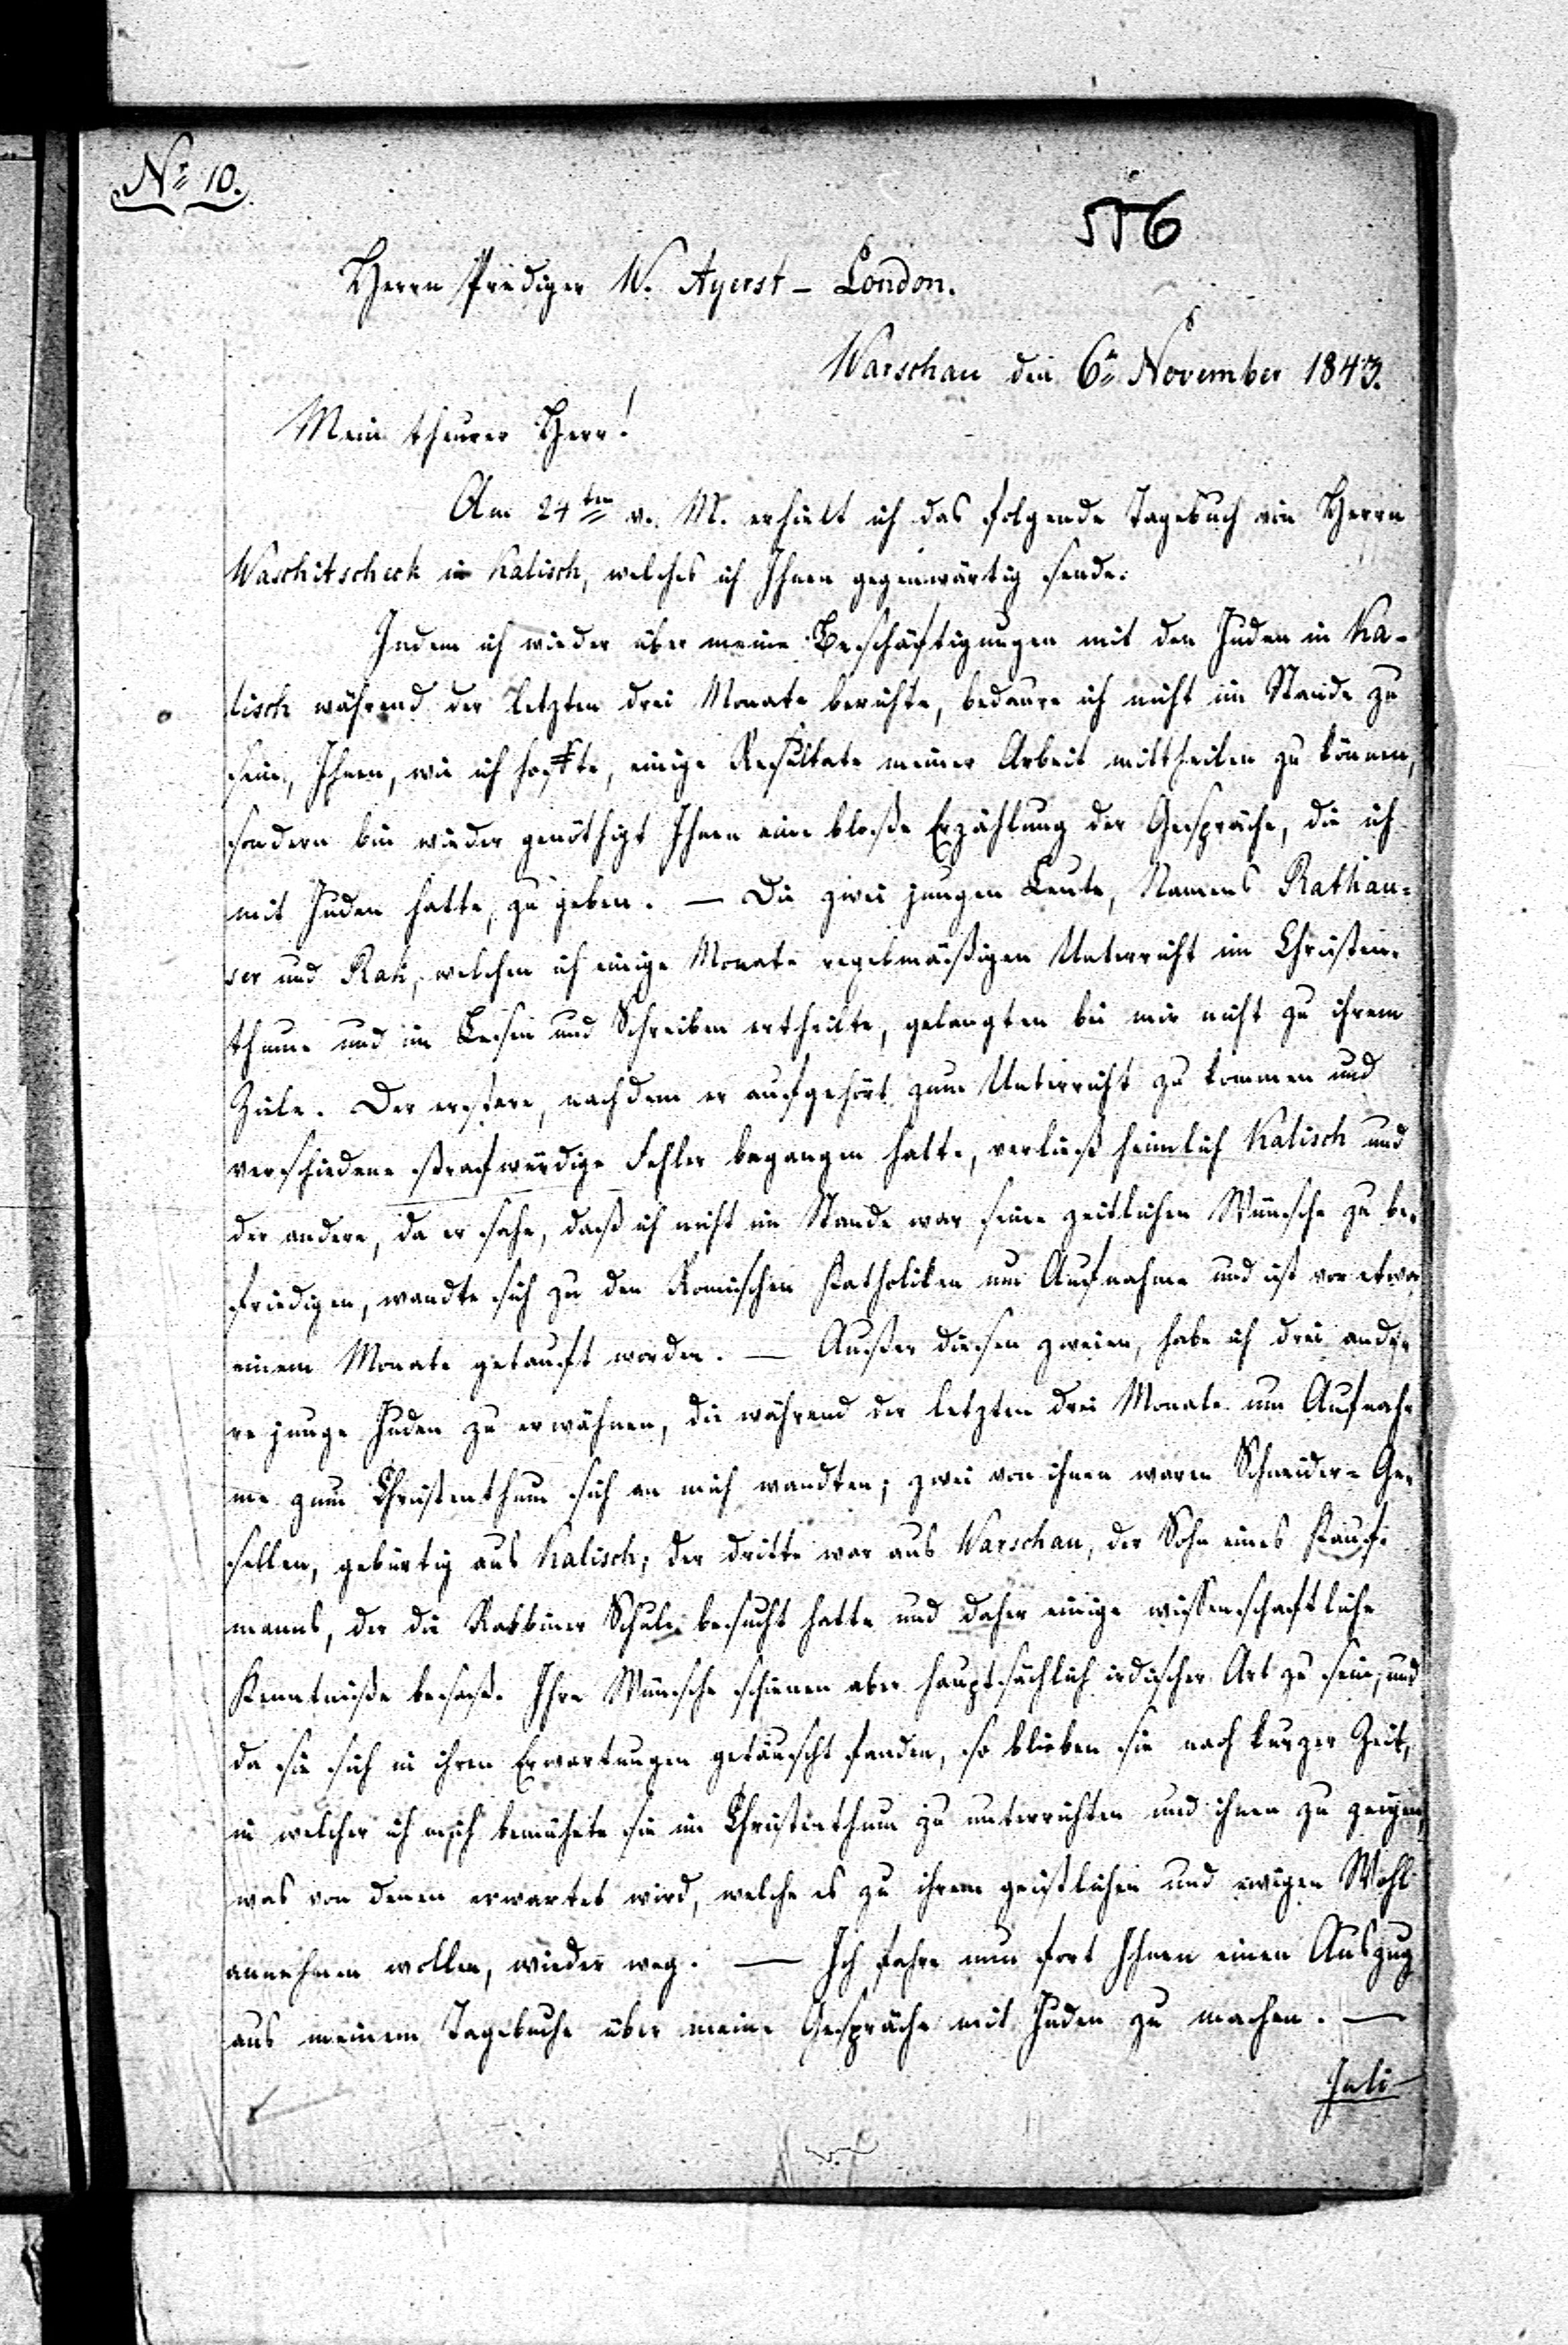 Nr 10.
556
Herrn Prediger W. Ayerst - London.
Warschau den 6n November 1843.
Mein theurer Herr!
Am 24ten v. M. erhielt ich das folgende Tagebuch von Herrn
Waschitscheck in Kalisch, welches ich Ihnen gegenwärtig sende.
Indem ich wieder über meine Beschäftigungen mit den Juden in Ka-
lisch während der letzten drei Monate berichte, bedaure ich nicht im Stande zu
sein, Ihnen, wie ich hoffte, einige Resultate meiner Arbeit mittheilen zu können,
sondern bin wieder genöthigt Ihnen eine bloße Erzählung der Gespräche, die ich
mit Juden hatte, zu geben. — Die zwei jungen Leute, Namens Rathau-
ser und Rak, welchen ich einige Monate regelmäßigen Unterricht im Christen-
thume und im Lesen und Schreiben ertheilte, gelangten bei mir nicht zu ihrem
Ziele. Der erstere, nachdem er aufgehört zum Unterricht zu kommen und
verschiedene strafwürdige Fehler begangen hatte, verließ heimlich Kalisch und
der andere, da er sahe, daß ich nicht im Stande war seine zeitlichen Wünsche zu be-
friedigen, wandte sich zu den Romischen Katholiken um Aufnahme und ist vor etwa
einem Monate getauft worden. — Außer diesen zweien, habe ich drei ande-
re junge Juden zu erwähnen, die während der letzten drei Monate um Aufnah-
me zum Christenthum sich an mich wandten; zwei von ihnen waren Schneider-Ge-
sellen, gebürtig aus Kalisch; der dritte war aus Warschau, der Sohn eines Kauf-
manns, der die Rabbiner Schule besucht hatte und daher einige wissenschaftliche
Kenntniße besaß. Ihre Wünsche schienen aber hauptsächlich irdischer Art zu sein, und
da sie sich in ihren Erwartungen getäuscht fanden, so blieben sie nach kurzer Zeit,
in welcher ich mich bemühete sie im Christenthum zu unterrichten und ihnen zu zeigen,
was von denen erwartet wird, welche es zu ihrem geistlichen und ewigen Wohl
annehmen wollen, wieder weg. — Ich fahre nun fort Ihnen einen Auszug
aus meinem Tagebuche über meine Gespräche mit Juden zu machen. —
Juli